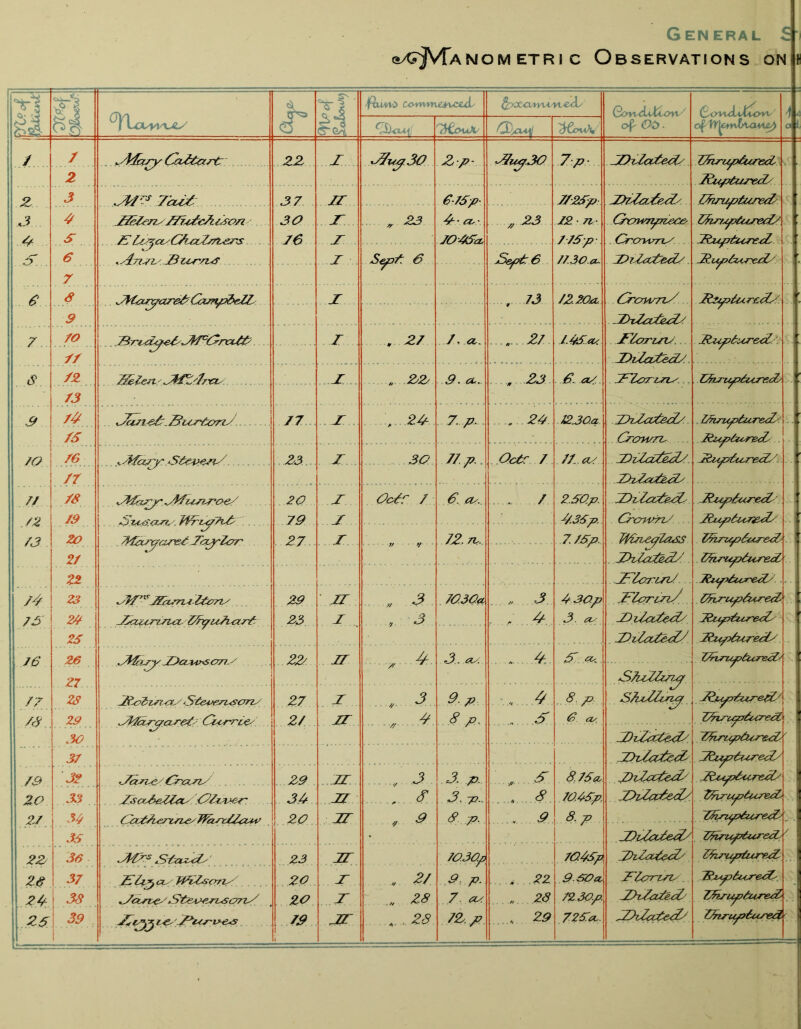 GENERAL S
MANOMETRIC OBSERVATIONS ON
No of Patient No of Obser Name Age No of Labour Pains commenced Examined Condition of Os. Condition of Membranes
Day Hour Day Hour
1 1 Mary Cattart 22 I Aug 30 2 p. Aug 30 7 p. Dilated Unruptured
2 Ruptured
2 3 Mrs Tait 37 II 6-15p 11-25p Dilated Unruptured
3 4 Helen Hutchison 30 I " 23 4. a. " 23 12. n. Crownpiece Unruptured
4 5 Eliza Chalmers 16 I 10-45a 1-15p Crown Ruptured
5 6 Ann Burns I Sept 6 Sept 6 11.30 a. Dilated Ruptured
7
6 8 Margaret Campbell I " 13 12.20a Crown Ruptured
9 Dilated
7 10 Bridget McGratt I " 21 1. a. " 21 1.45a Florin Ruptured
11 Dilated
8 12 Helen McAra I " 22 9. a. " 23 6. a. Florin Unruptured
13
9 14 Janet Burton 17 I " 24 7. p. " 24 12.30a Dilated Unruptured
15 Crown Ruptured
10 16 Mary Steven 23 I 30 11. p. Octr 1 11. a. Dilated Ruptured
17 Dilated
11 18 Mary Munroe 20 I Octr 1 6. a. " 1 2.50p. Dilated Ruptured
12 19 Susan Wright 19 I 4.35p Crown Ruptured
13 20 Margaret Taylor 27 I " " 12. n. 7.15p Wineglass Unruptured
21 Dilated Unruptured
22 Florin Ruptured
14 23 Mrs Hamilton 29 II " 3 10.30a " 3 4.30p Florin Unruptured
15 24 Laurina Urquhart 23 I " 3 " 4 3 a. Dilated Ruptured
25 Dilated Ruptured
16 26 Mary Dawson 22 II " 4 3. a. " 4 5 a. Unruptured
27 Shilling
17 28 Robina Stevenson 27 I " 3 9. p " 4 8. p Shilling Ruptured
18 29 Margaret Currie 21 II " 4 8 p. " 5 6 a. Unruptured
30 Dilated Unruptured
31 Dilated Ruptured
19 32 Jane Crain 29 II " 3 3. p. " 5 8.15a Dilated Ruptured
20 33 Isabella Oliver 34 II " 8 3. p. " 8 10.45p Dilated Unruptured
21 34 Catherine Wardlaw 20 II " 9 8 p. " 9 8. p Unruptured
35 Dilated Unruptured
22 36 Mrs Staid 23 II 10.30p 10.45p Dilated Unruptured
23 37 Eliza Wilson 20 I " 21 9. p. " 22 9.50a Florin Ruptured
24 38 Jane Stevenson 20 I " 28 7 a. " 28 12.30p. Dilated Unruptured
25 39 Lizzie Purves 19 II " 28 12. p " 29 7.25a. Dilated Unruptured